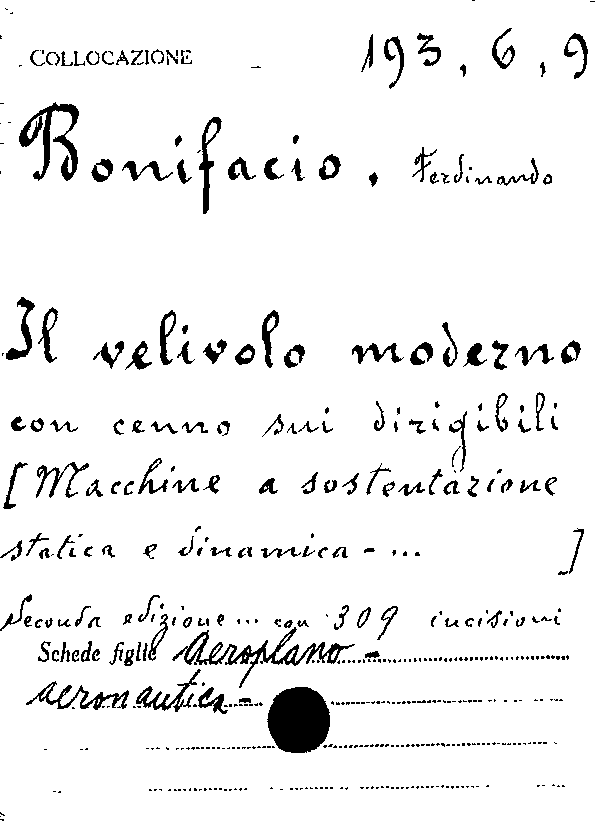 COLLOCAZIONE 193, 6, 9
Bonifacio, Ferdinando
Il velivolo moderno
con cenno sui dirigibili
[Macchine a sostentazione
statica e dinamica - ... ]
Seconda edizione ... con 309 incisioni
Schede figlie Aeroplano -
aeronautica -